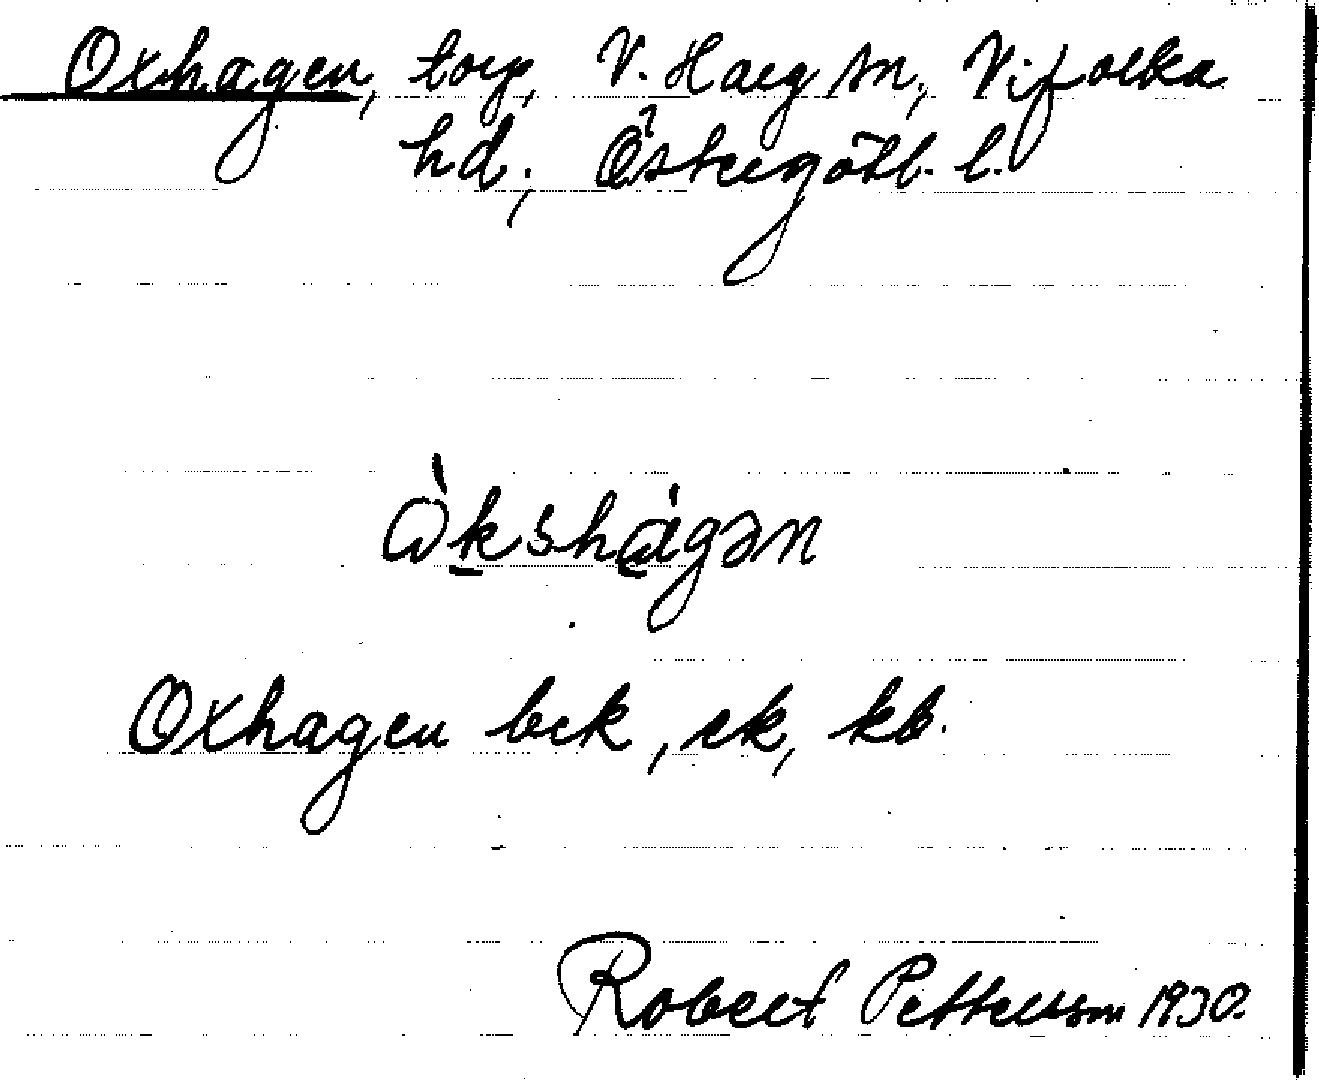 Oxhagen, torp, V. Harg sn, Vifolka
hd, Östergötl. l.
ὼkshágən
Oxhagen bck, ek, kb.
Robert Petterson 1930.